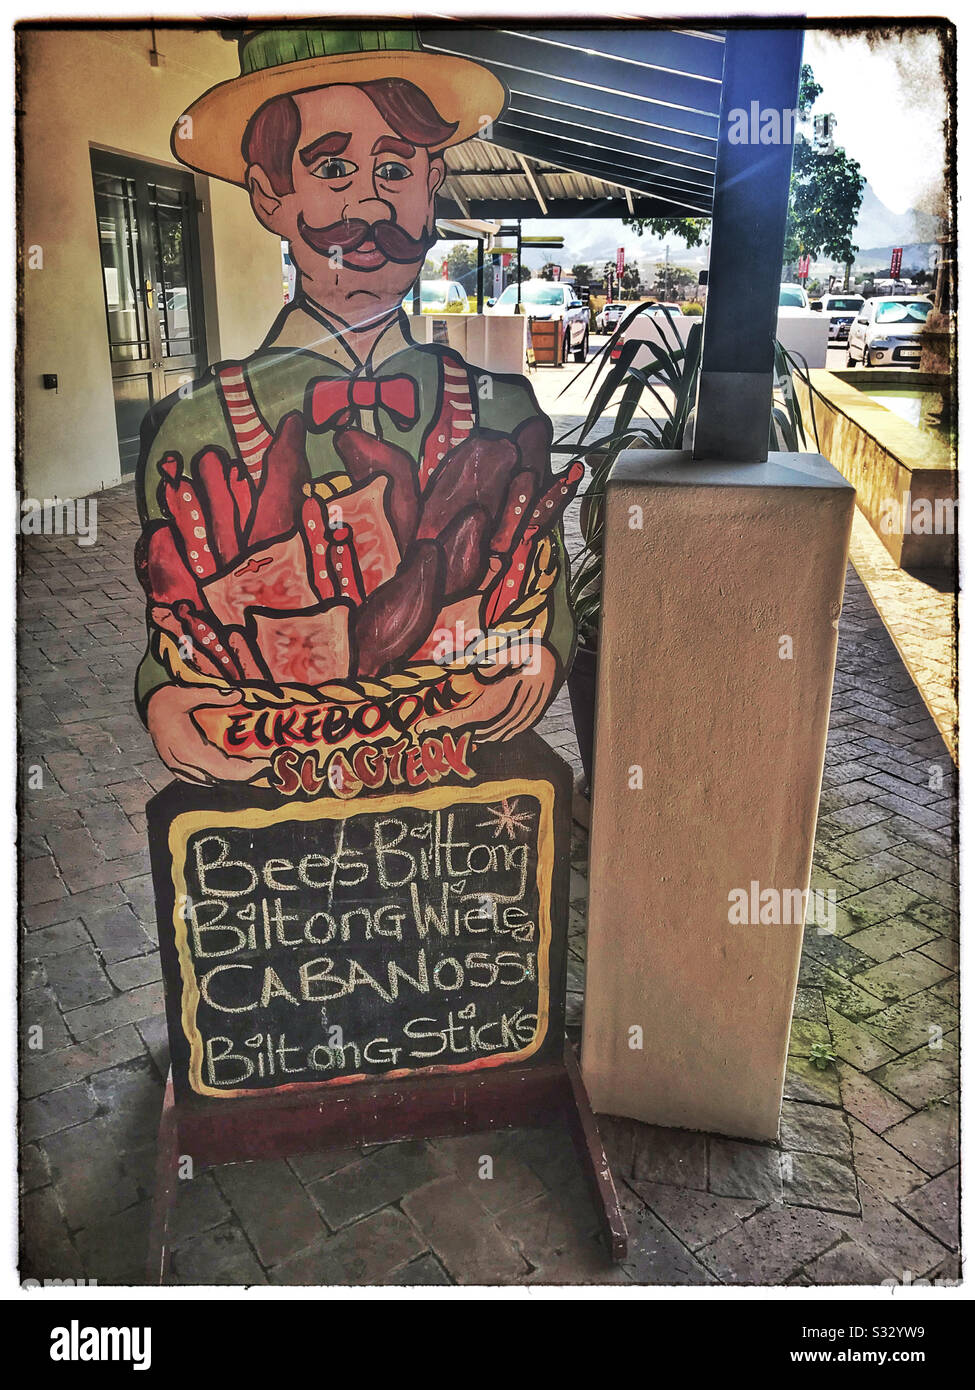 EIKEBOOM
SLAGTERY
Bees Biltong
Biltong Wiele
CABANOSSI
Biltong Sticks
alamy
Image ID: S32YW9
www.alamy.com